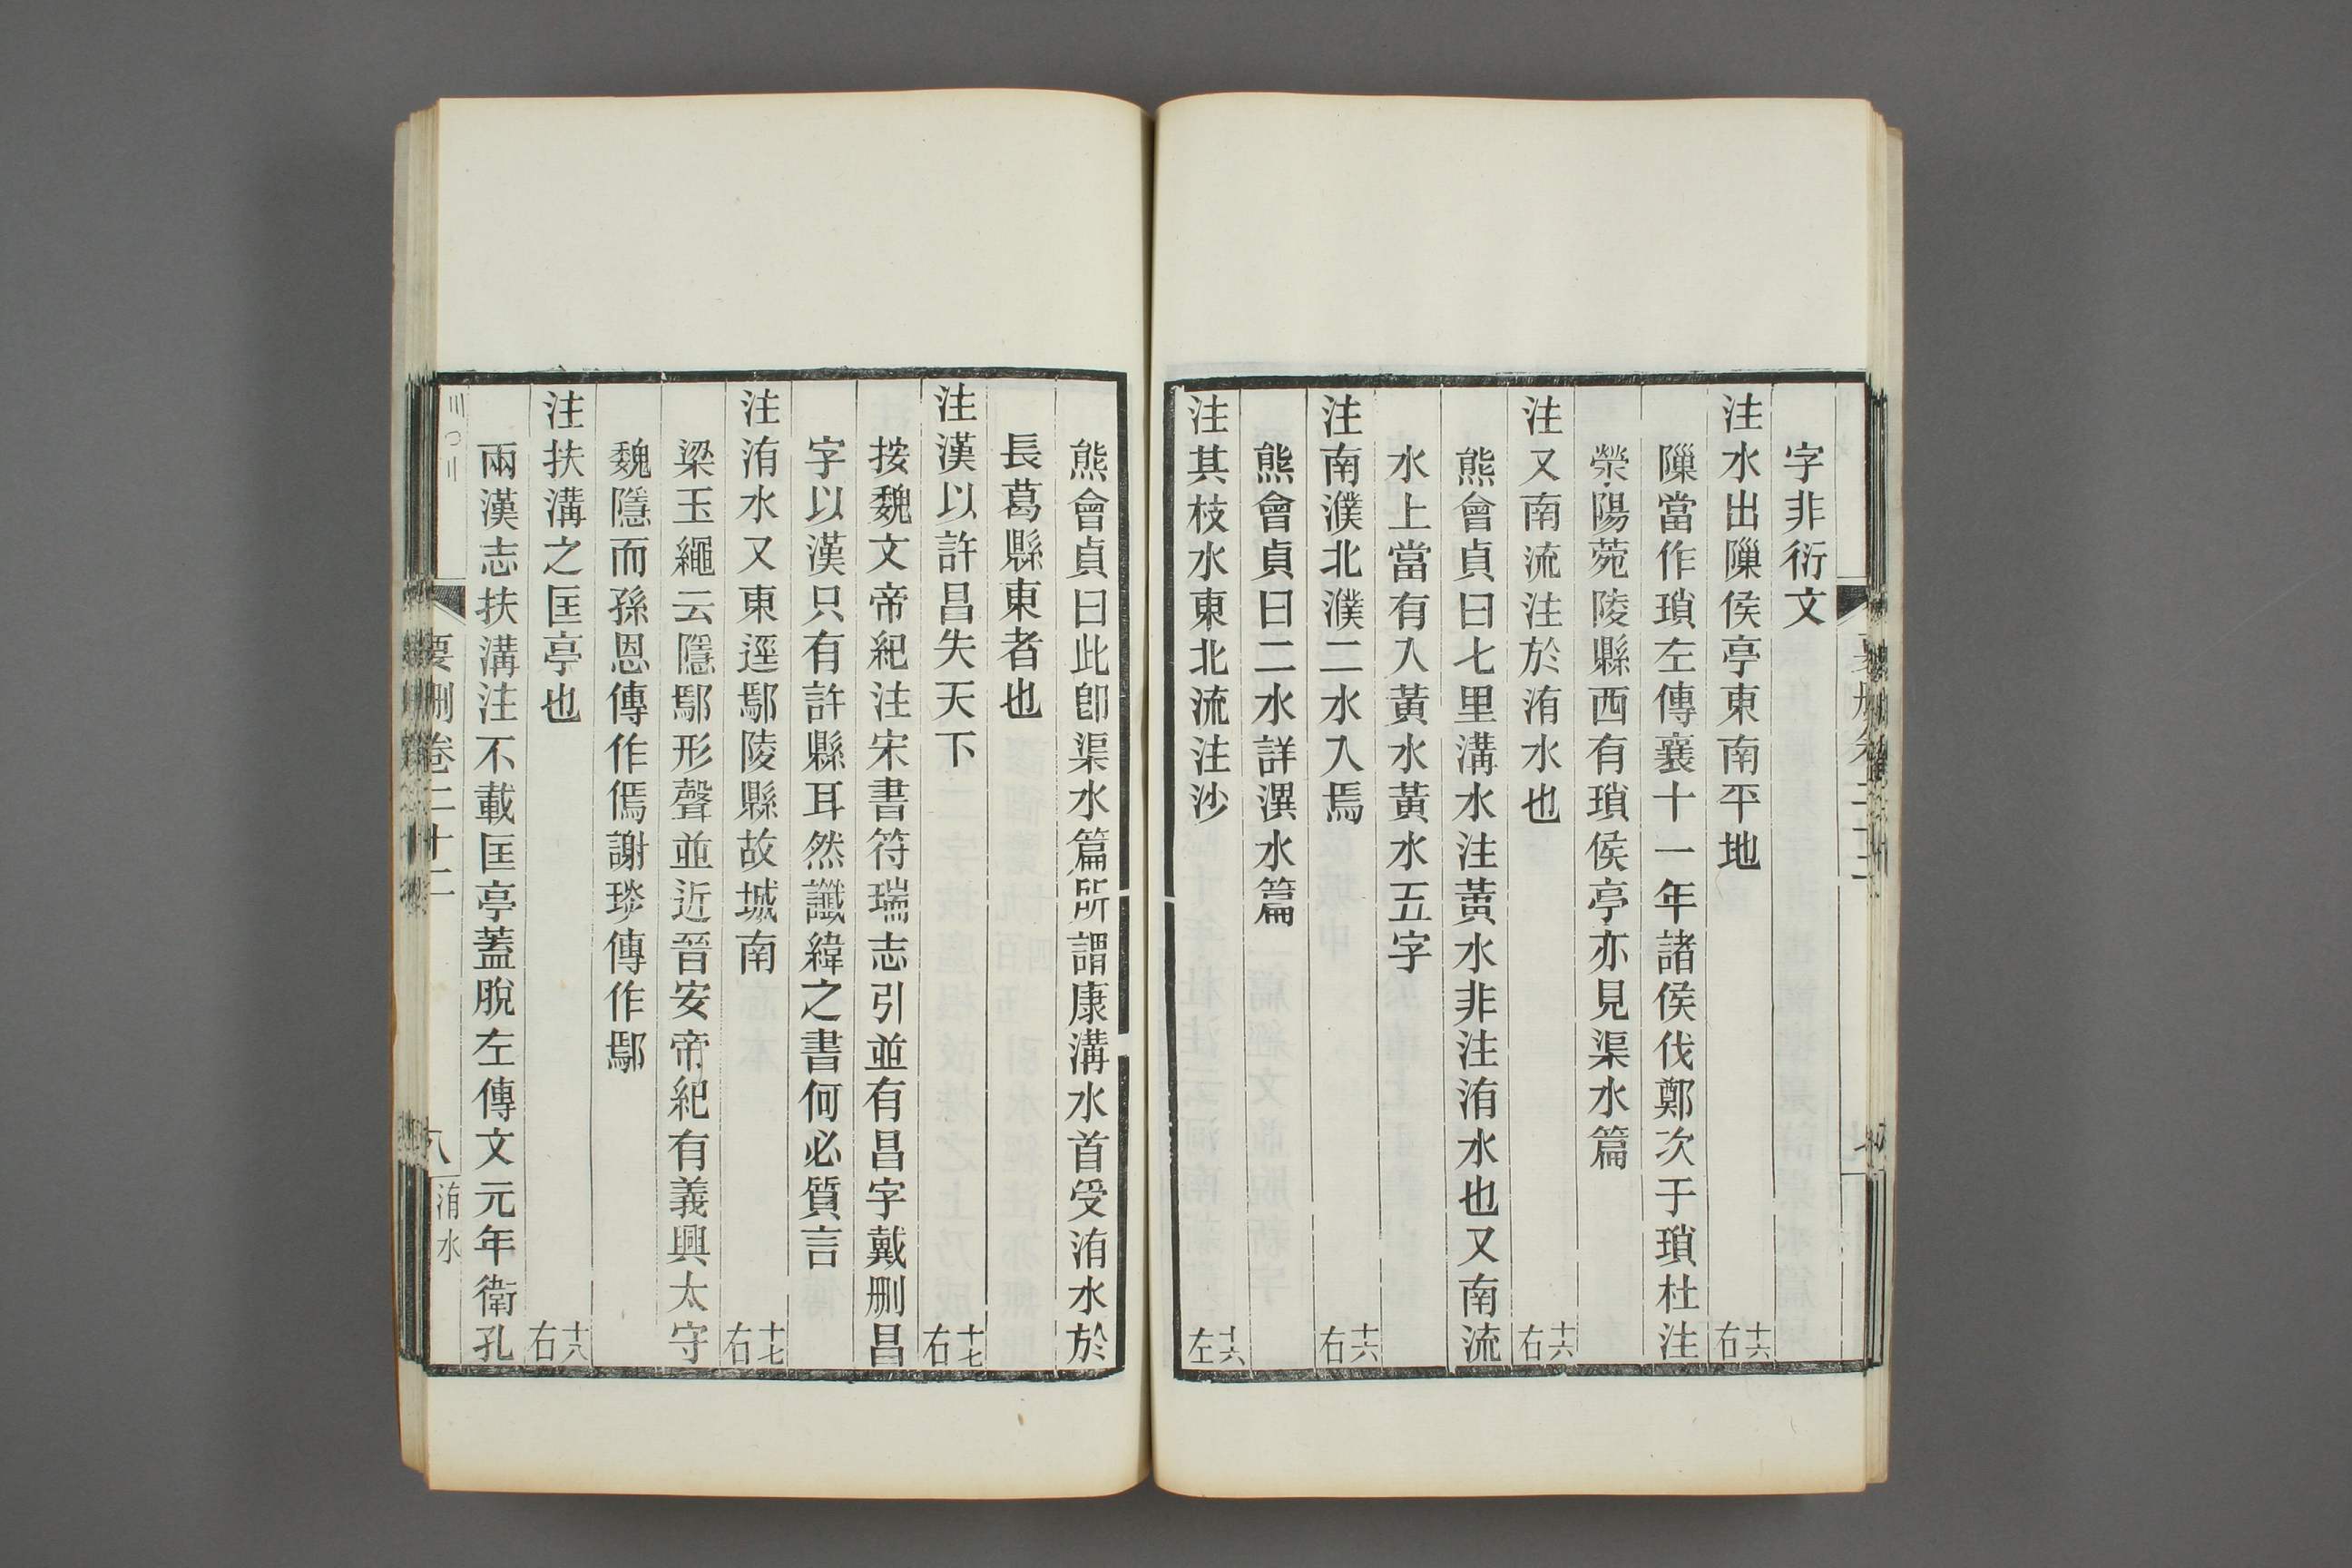 字非衍文
注水出隟侯亭東南平地 十六右
隟當作瑣左傳襄十一年諸侯伐鄭次于瑣杜注
滎陽菀陵縣西有瑣侯亭亦見渠水篇
注又南流注於洧水也 十六右
熊會貞曰七里溝水注黃水非注洧水也又南流
水上當有入黃水黃水五字
注南濮北濮二水入焉 十六右
熊會貞曰二水詳潩水篇
注其枝水東北流注沙 十六左
熊會貞曰此卽渠水篇所謂康溝水首受洧水於
長葛縣東者也
注漢以許昌失天下 十七右
按魏文帝紀注宋書符瑞志引並有昌字戴刪昌
字以漢只有許縣耳然讖緯之書何必質言
注洧水又東逕鄢陵縣故城南 十七右
梁玉繩云隱鄢形聲並近晉安帝紀有義興太守
魏隱而孫恩傳作傿謝琰傳作鄢
注扶溝之匡亭也 十八右
兩漢志扶溝注不載匡亭蓋脫左傳文元年衛孔
要刪卷二十二 八 洧水